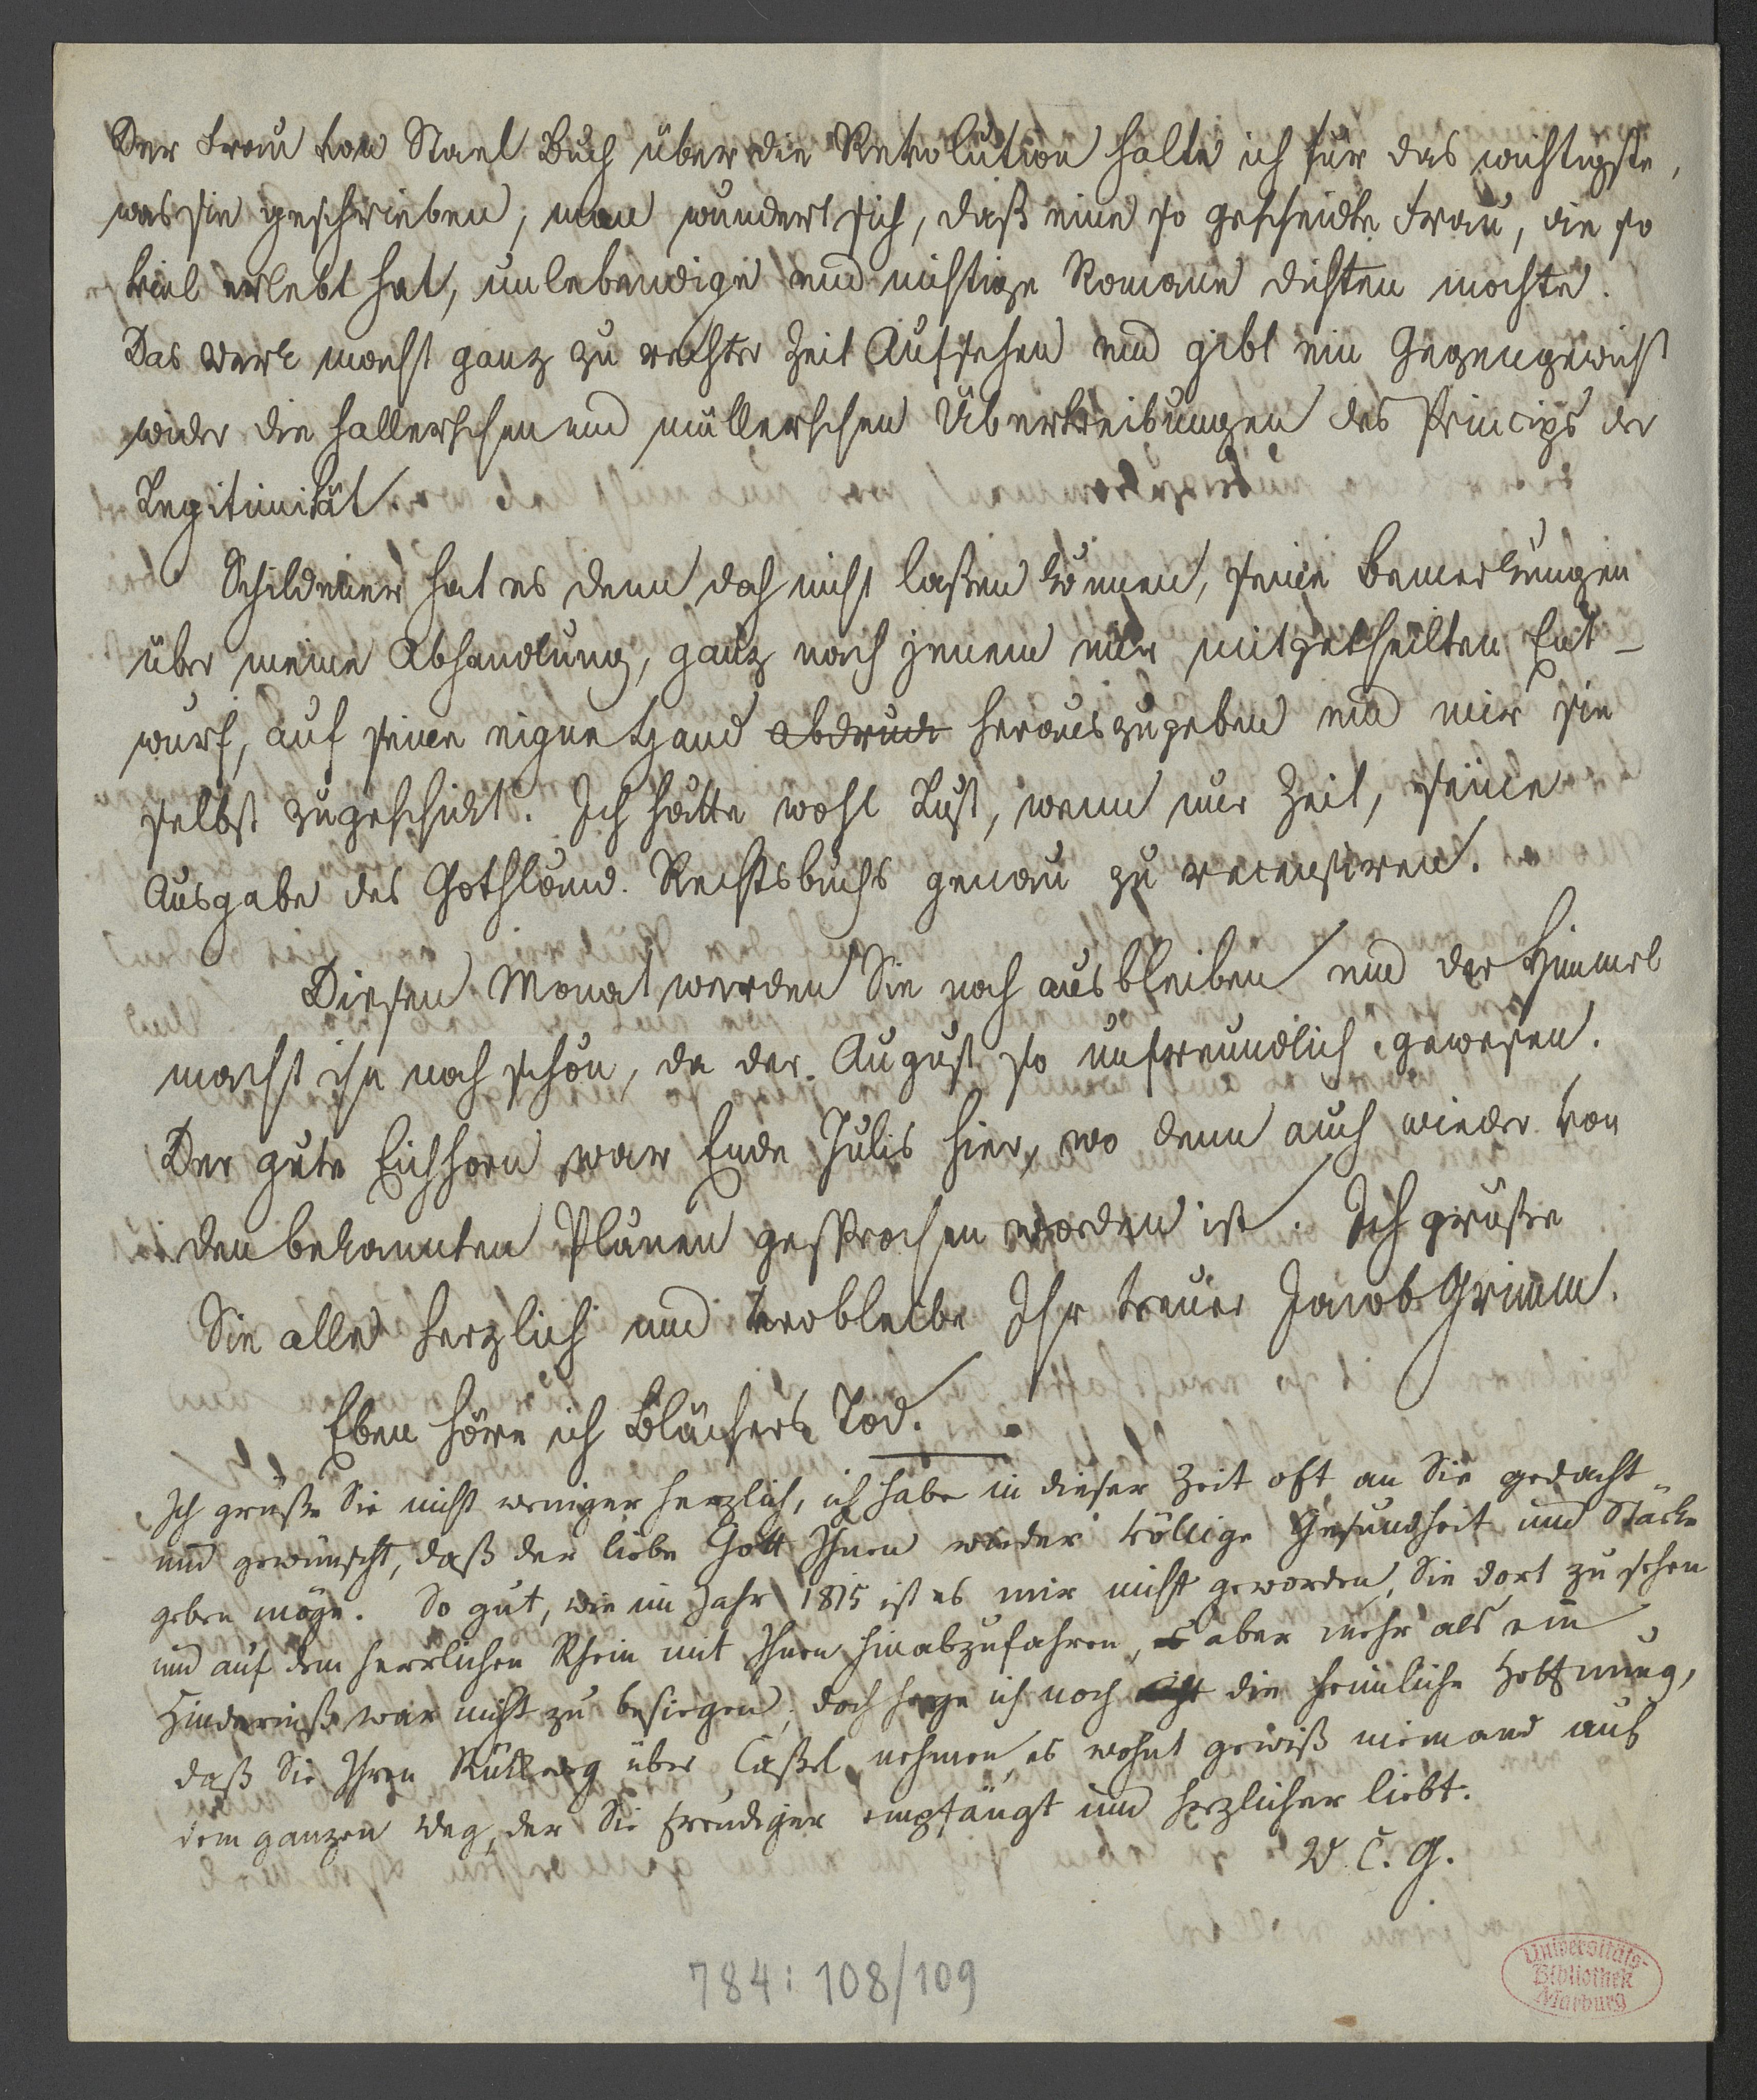 Der Frau von Stael Buch über die Revolution halte ich für das wichtigste,
was sie geschrieben; man wundert sich, daß eine so gescheidte Frau, die so
viel erlebt hat, unlebendige und nichtige Romane dichten mochte.
Das Werk macht ganz zu rechter Zeit Aufsehen und gibt ein Gegengewicht
wider die hallerschen und müllerschen Übertreibungen des Princips der
Legitimität.
Schildener hat es denn doch nicht laßen können, seine Bemerkungen
über meine Abhandlung, ganz nach jenem mir mitgetheilten Ent-
wurf, auf seine eigne Hand abdruck herauszugeben und mir sie
selbst zugeschickt. Ich hätte wohl Lust, wenn nur Zeit, seine
Ausgabe des Gothländ. Rechtsbuchs genau zu recensiren.
Diesen Monat werden Sie noch ausbleiben und der Himmel
macht ihn noch schön, da der August so unfreundlich gewesen.
Der gute Eichhorn war Ende Julis hier, wo denn auch wieder von
den bekannten Planen gesprochen worden ist. Ich grüße
Sie alle herzlich und verbleibe Ihr treuer Jacob Grimm.
Eben höre ich Blüchers Tod.
Ich grüße Sie nicht weniger herzlich, ich habe in dieser Zeit oft an Sie gedacht
und gewünscht, daß der liebe Gott Ihnen wieder völlige Gesundheit und Stärke
geben möge. So gut, wie im Jahr 1815 ist es mir nicht geworden, Sie dort zu sehen
und auf dem herrlichen Rhein mit Ihnen hinabzufahren, es aber mehr als ein
Hinderniß war nicht zu besiegen; doch hege ich noch die heimliche Hoffnung,
daß Sie Ihren Rückweg über Caßel nehmen, es wohnt gewiß niemand auf
dem ganzen Weg, der Sie freudiger empfängt und herzlicher liebt.
W. C. G.
784: 108/109
Universitäts-
Bibliothek
Marburg